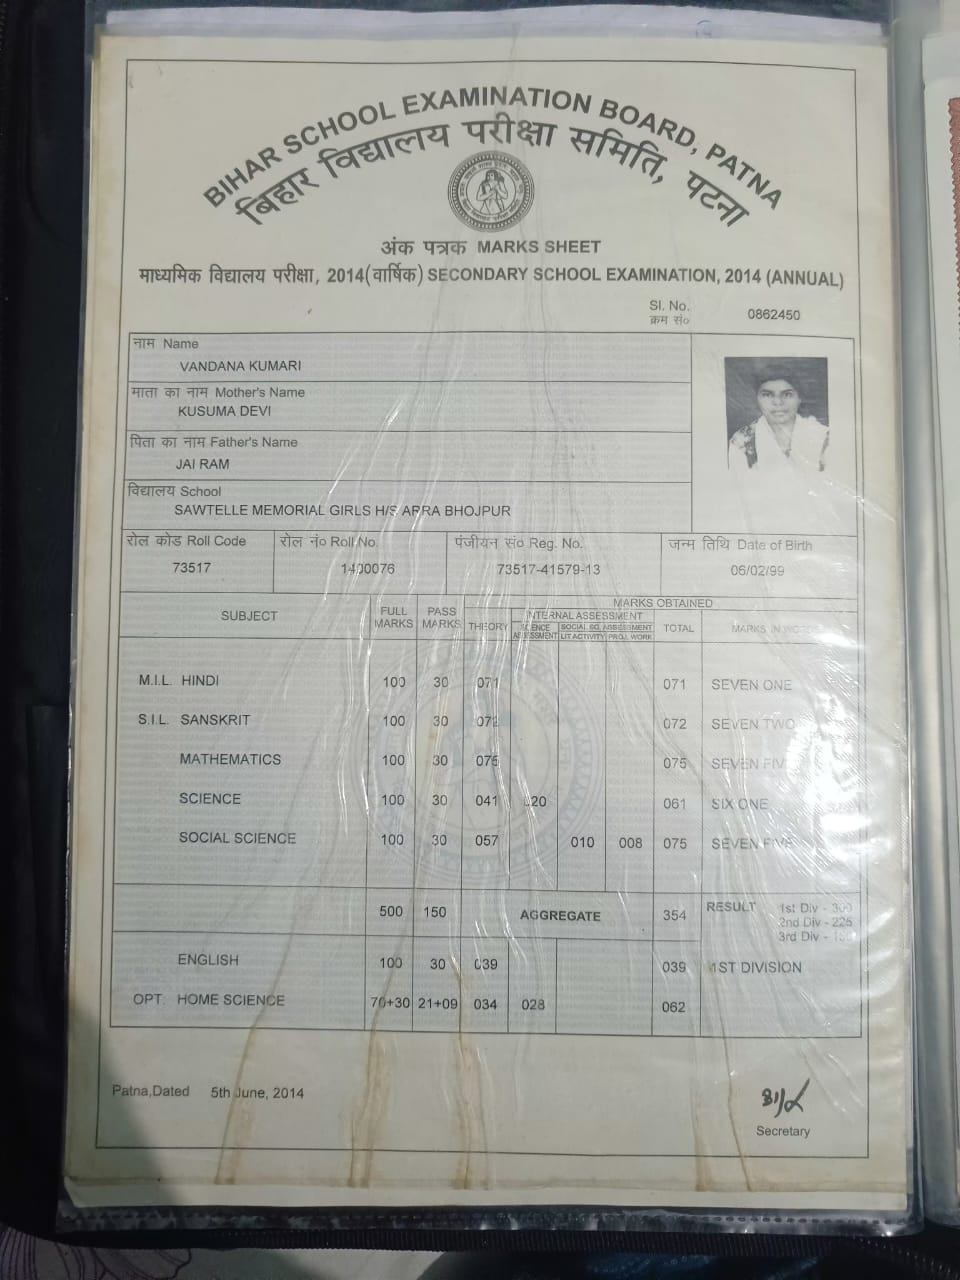 BIHAR SCHOOL EXAMINATION BOARD, PATNA
बिहार विद्यालय परीक्षा समिति, पटना
अंक पत्रक MARKS SHEET
माध्यमिक विद्यालय परीक्षा, 2014(वार्षिक) SECONDARY SCHOOL EXAMINATION, 2014 (ANNUAL)
Sl. No.
क्रम सं० 0862450
नाम Name
VANDANA KUMARI
माता का नाम Mother's Name
KUSUMA DEVI
पिता का नाम Father's Name
JAI RAM
विद्यालय School
SAWTELLE MEMORIAL GIRLS H/S ARRA BHOJPUR
रोल कोड Roll Code रोल नं० Roll No. पंजीयन सं० Reg. No. जन्म तिथि Date of Birth
73517 1400076 73517-41579-13 06/02/99
MARKS OBTAINED
SUBJECT FULL MARKS PASS MARKS THEORY INTERNAL ASSESSMENT TOTAL MARKS IN WORDS
SCIENCE ASSESSMENT SOCIAL SC. ASSESSMENT
LIT ACTIVITY PROJ. WORK
M.I.L. HINDI 100 30 071 071 SEVEN ONE
S.I.L. SANSKRIT 100 30 072 072 SEVEN TWO
MATHEMATICS 100 30 075 075 SEVEN FIVE
SCIENCE 100 30 041 020 061 SIX ONE
SOCIAL SCIENCE 100 30 057 010 008 075 SEVEN FIVE
500 150 AGGREGATE 354 RESULT 1st Div - 300
2nd Div - 225
3rd Div -
ENGLISH 100 30 039 039 1ST DIVISION
OPT. HOME SCIENCE 70+30 21+09 034 028 062
Patna,Dated 5th June, 2014
Secretary